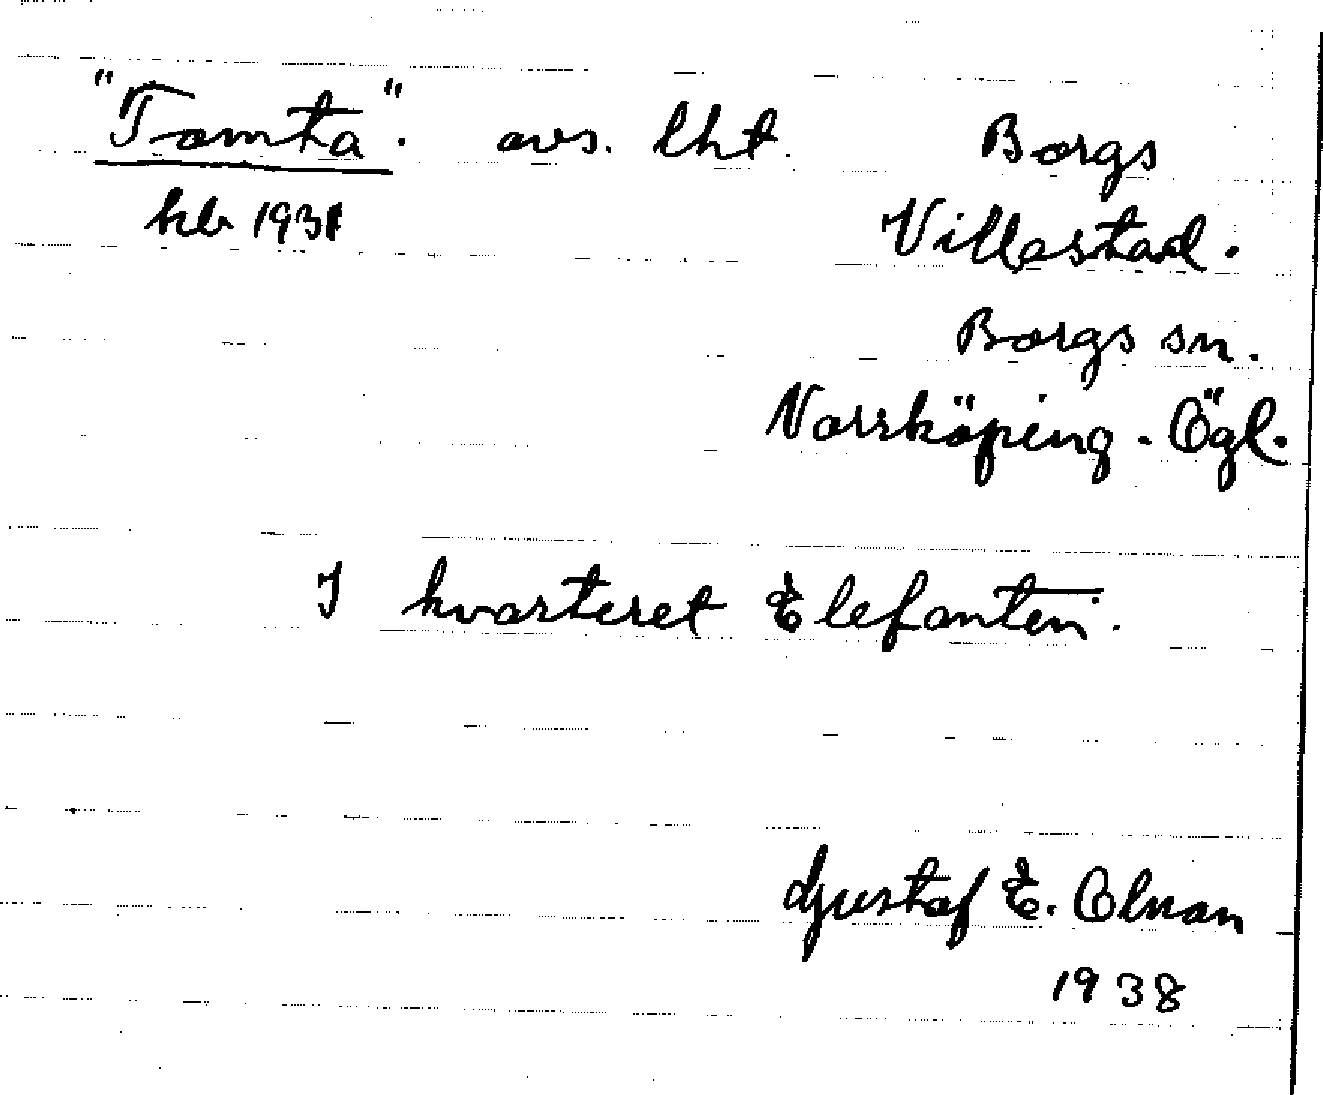 "Tomta". avs. lht. Borgs
hlr 1931 Villastad.
Borgs sn.
Norrköping. Ögl.
I kvarteret Elefanten.
Gustaf E. Olman
1938